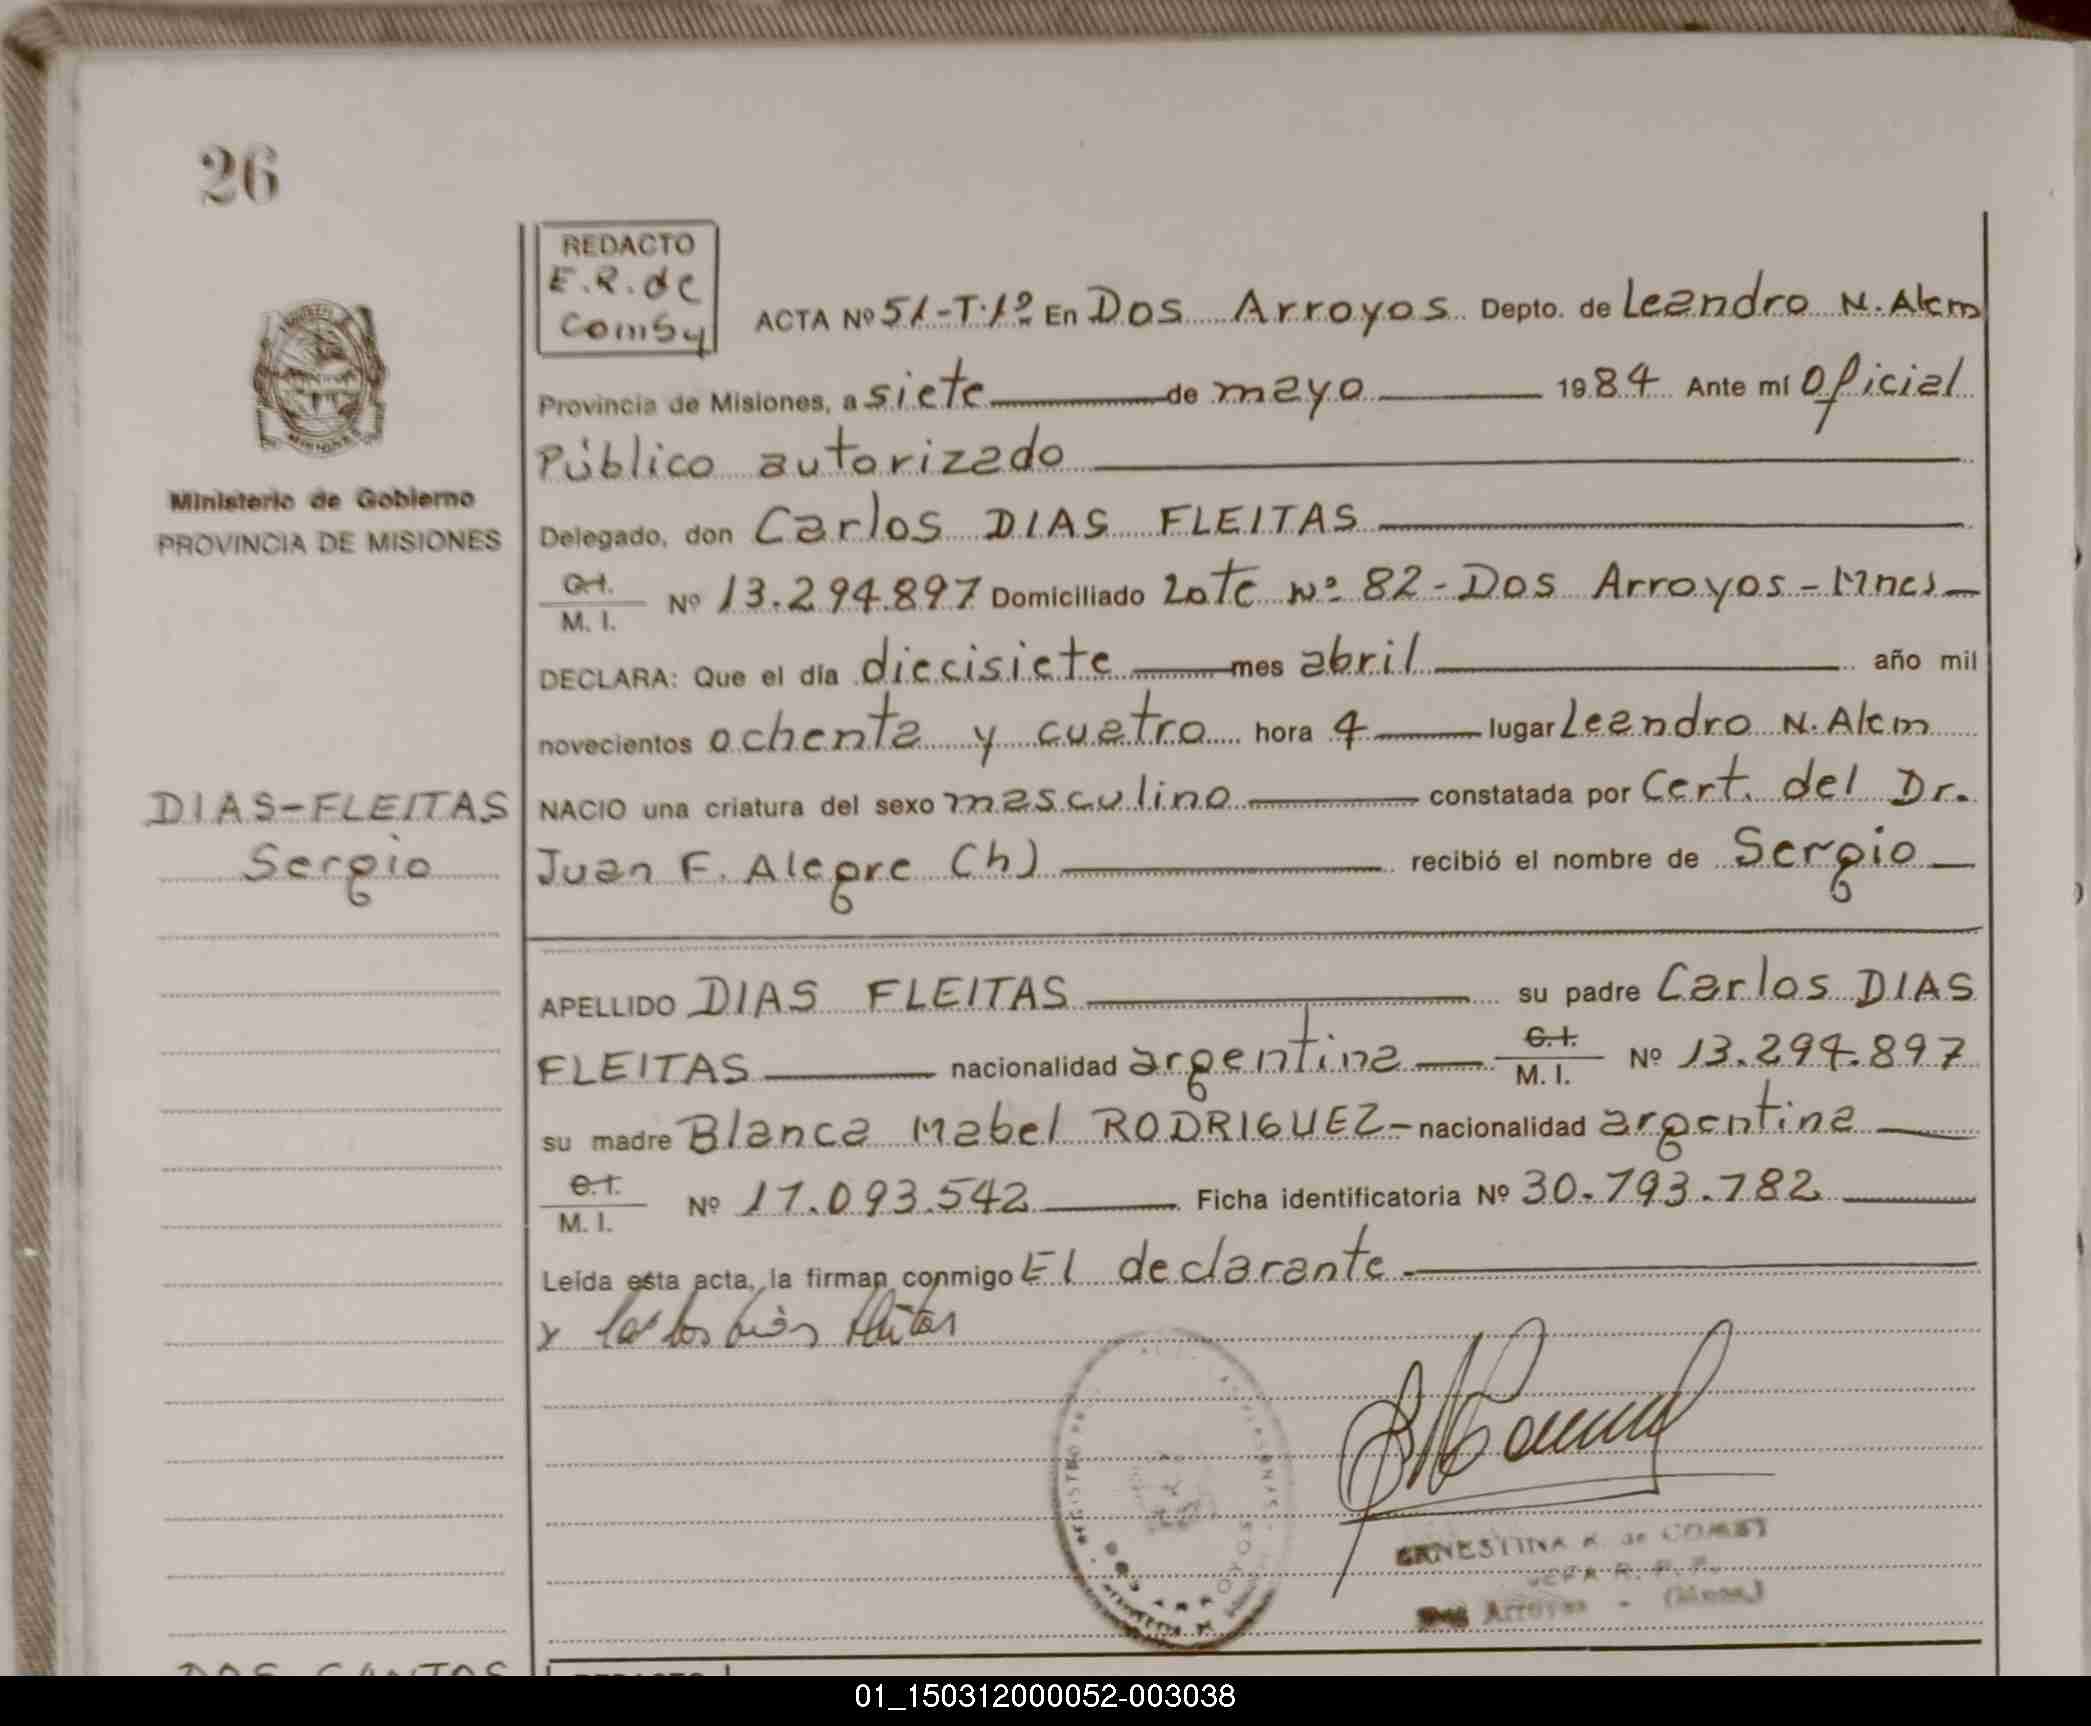 26
REDACTO
E.R. de
Comby
ACTA Nº 51-T.1º En Dos Arroyos Depto. de Leandro N. Alem
Provincia de Misiones, a siete de mayo 1984 Ante mí Oficial
Público autorizado
Ministerio de Gobierno
PROVINCIA DE MISIONES
Delegado, don Carlos DIAS FLEITAS
C.I.
M. I. Nº 13.294.897 Domiciliado Lote Nº 82-Dos Arroyos-Mnes
DECLARA: Que el día diecisiete mes abril año mil
novecientos ochenta y cuatro hora 4 lugar Leandro N. Alem
DIAS-FLEITAS
Sergio
NACIO una criatura del sexo masculino constatada por Cert. del Dr.
Juan F. Alegre (h) recibió el nombre de Sergio
APELLIDO DIAS FLEITAS su padre Carlos DIAS
FLEITAS nacionalidad argentina C.I. M. I. Nº 13.294.897
su madre Blanca Mabel RODRIGUEZ- nacionalidad argentina
C.I.
M. I. Nº 17.093.542 Ficha identificatoria Nº 30.793.782
Leída esta acta, la firman conmigo El declarante
x Carlos Dias Fleitas
DOS ARROYOS
ERNESTINA R. de COMBY
JEFA R. P. P.
Dos Arroyos - (Mnes.)
DOS SANTOS
REDACTO
01_150312000052-003038